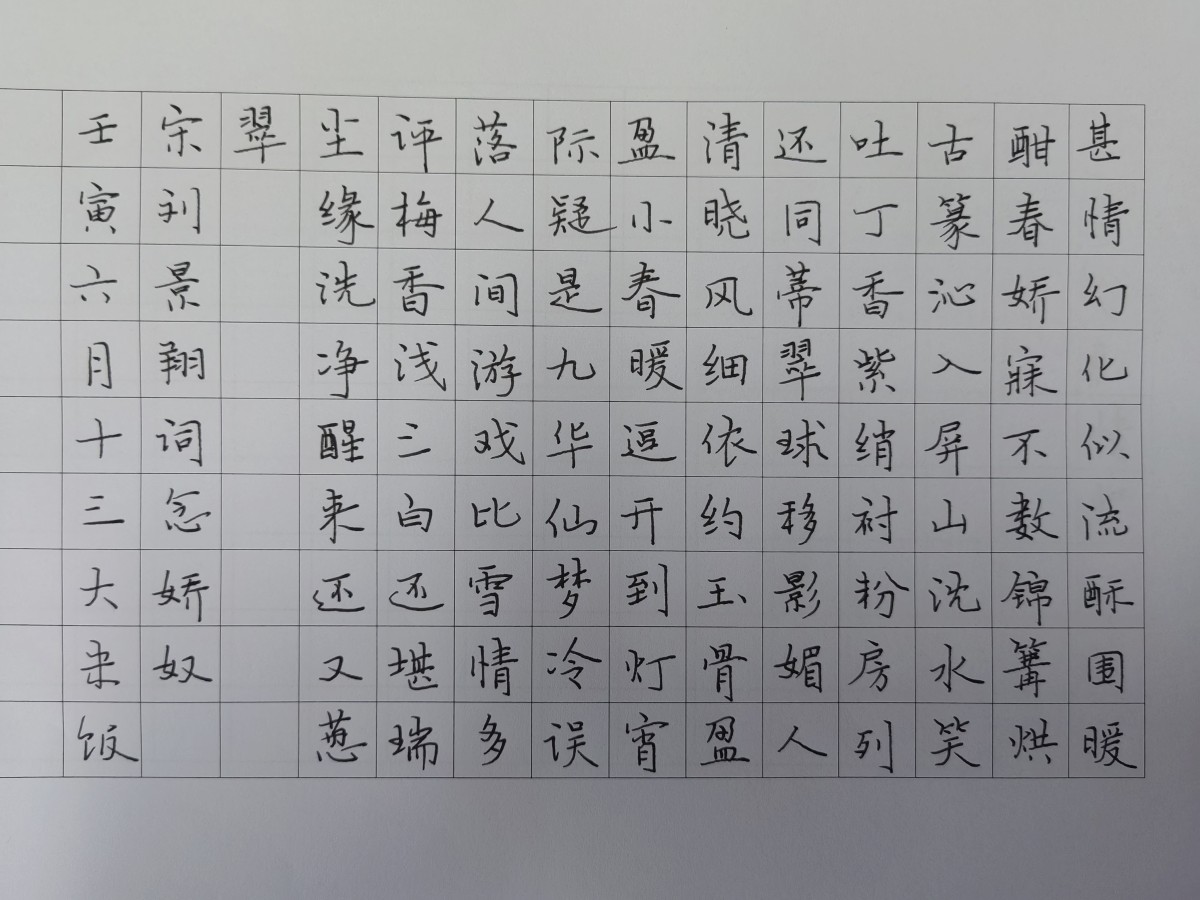 甚情幻化似流酥围暖
酣春娇寐不数锦篝烘
古篆沁入屏山沈水笑
吐丁香紫绡衬粉房列
还同蒂翠球移影媚人
清晓风细依约玉骨盈
盈小春暖逗开到灯宵
际疑是九华仙梦冷误
落人间游戏比雪情多
评梅香浅三白还堪瑞
尘缘洗净醒来还又葱
翠
宋刘景翔词念娇奴
壬寅六月十三大米饭